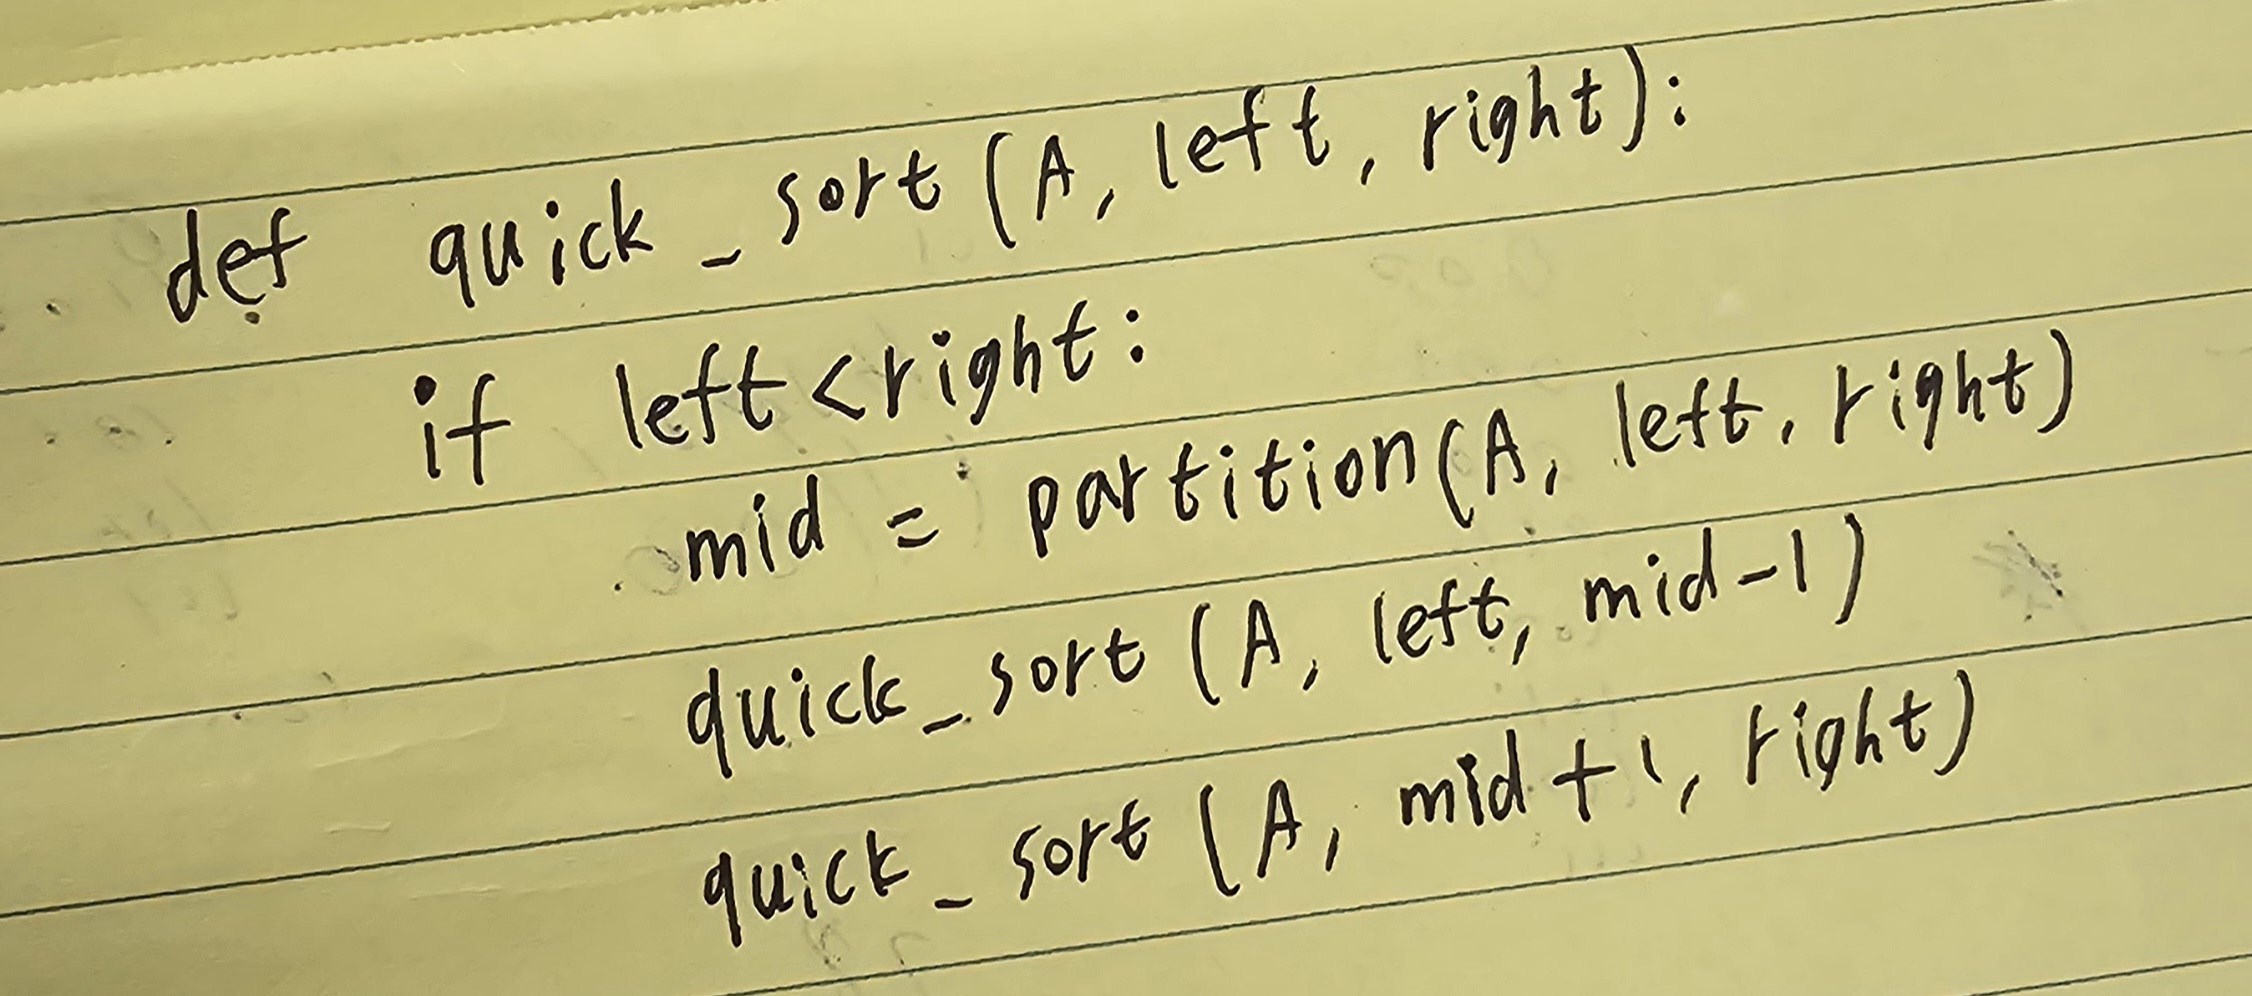 def quick_sort(A, left, right):
    if left<right:
        mid = partition(A, left, right)
        quick_sort(A, left, mid-1)
        quick_sort(A, mid+1, right)